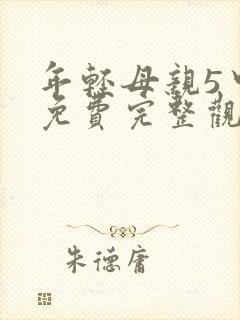 年輕母親5中
免費完整觀
朱德庸